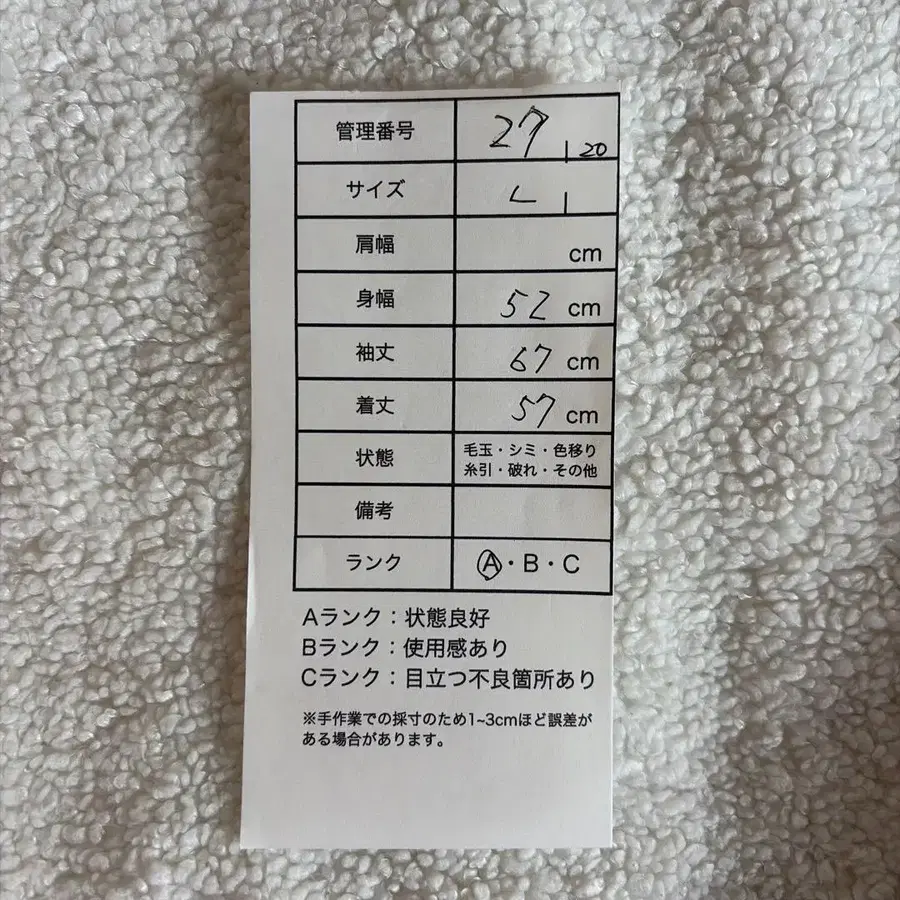 管理番号 27 | 20
サイズ L |
肩幅 cm
身幅 52 cm
袖丈 67 cm
着丈 57 cm
状態 毛玉・シミ・色移り
糸引・破れ・その他
備考
ランク A・B・C
Aランク：状態良好
Bランク：使用感あり
Cランク：目立つ不良箇所あり
※手作業での採寸のため1~3cmほど誤差が
ある場合があります。